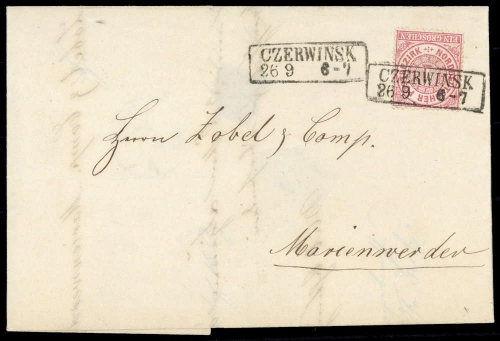 CZERWINSK
26 9 6-7
EIN GROSCHEN
NORD
BEZIRK
CZERWINSK
26 9 6-7
Herrn Zobel & Comp.
Marienwerder